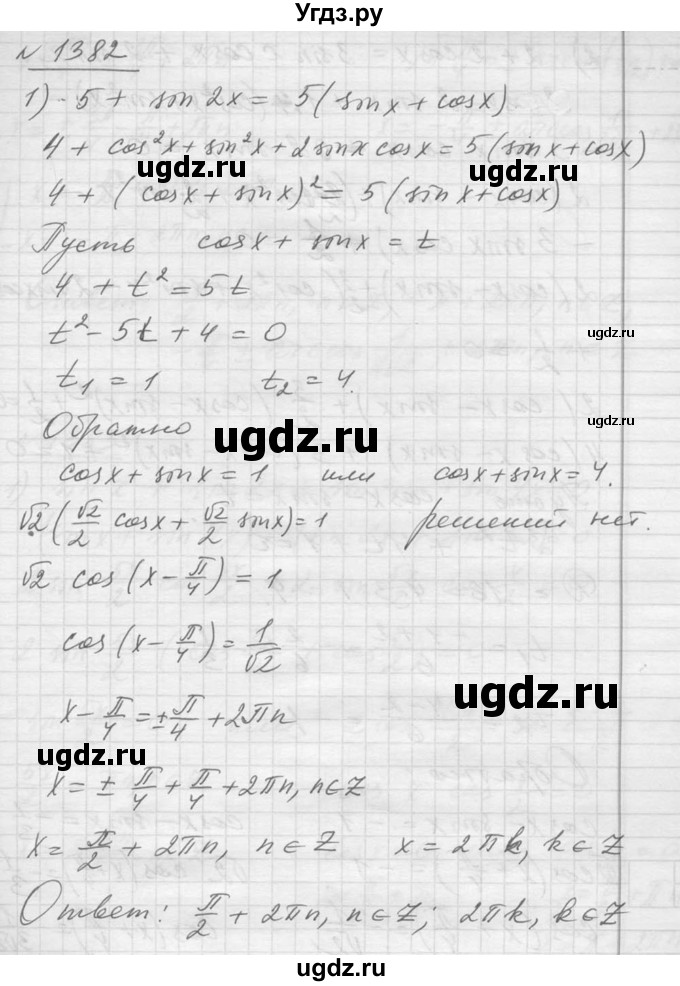 Угдз.ру
№ 1382
1) - 5 + sin 2x = 5 (sinx + cosx)
4 + cos²x + sin²x + 2 sinx cosx = 5 (sinx + cosx)
4 + (cosx + sinx)² = 5 (sinx + cosx)
Пусть cosx + sinx = t
ugdz.ru
4 + t² = 5t
t² - 5t + 4 = 0
ugdz.ru
t₁ = 1 t₂ = 4.
ugdz.ru
Обратно
ugdz.ru
cosx + sinx = 1 или cosx + sinx = 4.
√2 (√2/2 cosx + √2/2 sinx) = 1 решений нет.
√2 cos (x - π/4) = 1
cos (x - π/4) = 1/√2
ugdz.ru
x - π/4 = ± π/4 + 2πn
ugdz.ru
x = ± π/4 + π/4 + 2πn, n ∈ Z
x = π/2 + 2πn, n ∈ Z x = 2πk, k ∈ Z
ugdz.ru
Ответ: π/2 + 2πn, n ∈ Z; 2πk, k ∈ Z
ugdz.ru